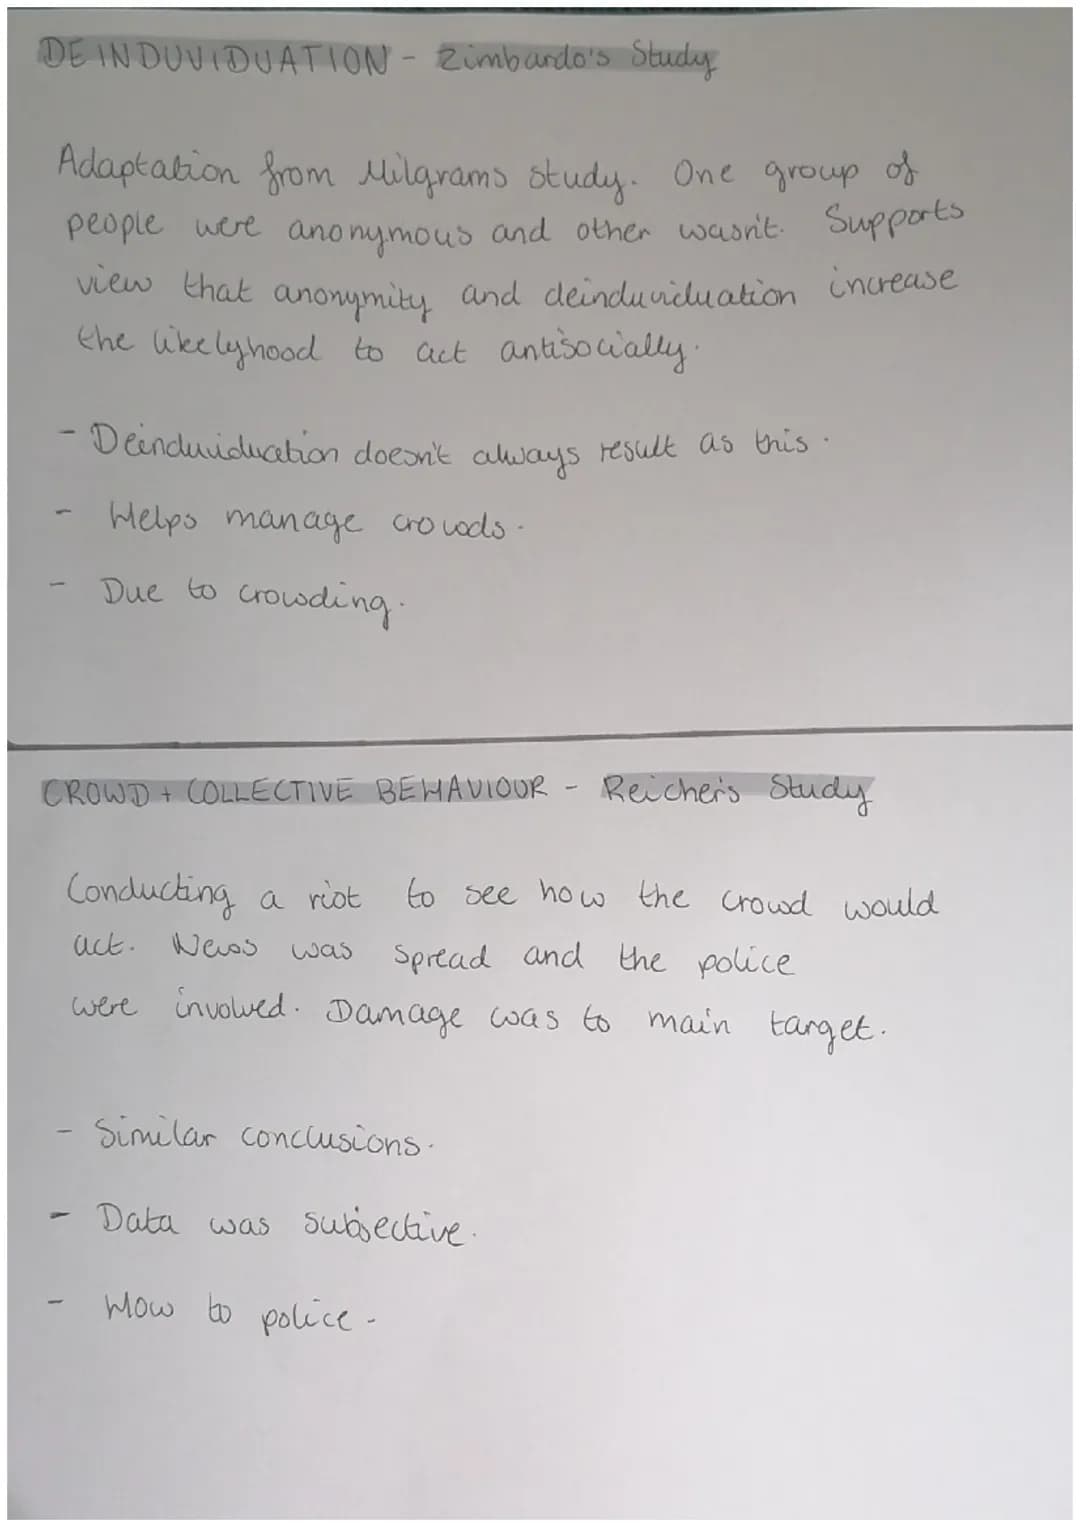 DEINDUVIDUATION - Zimbardo's Study
Adaptation from Milgrams study. One group of
people were anonymous and other wasn't. Supports
view that anonymity and deinduviduation increase
the likelyhood to act antisocially.
- Deinduviduation doesn't always result as this.
- Helps manage crowds.
- Due to crowding.
CROWD + COLLECTIVE BEHAVIOUR - Reicher's Study
Conducting a riot to see how the crowd would
act. News was spread and the police
were involved. Damage was to main target.
- Similar conclusions.
- Data was subjective.
- How to police.